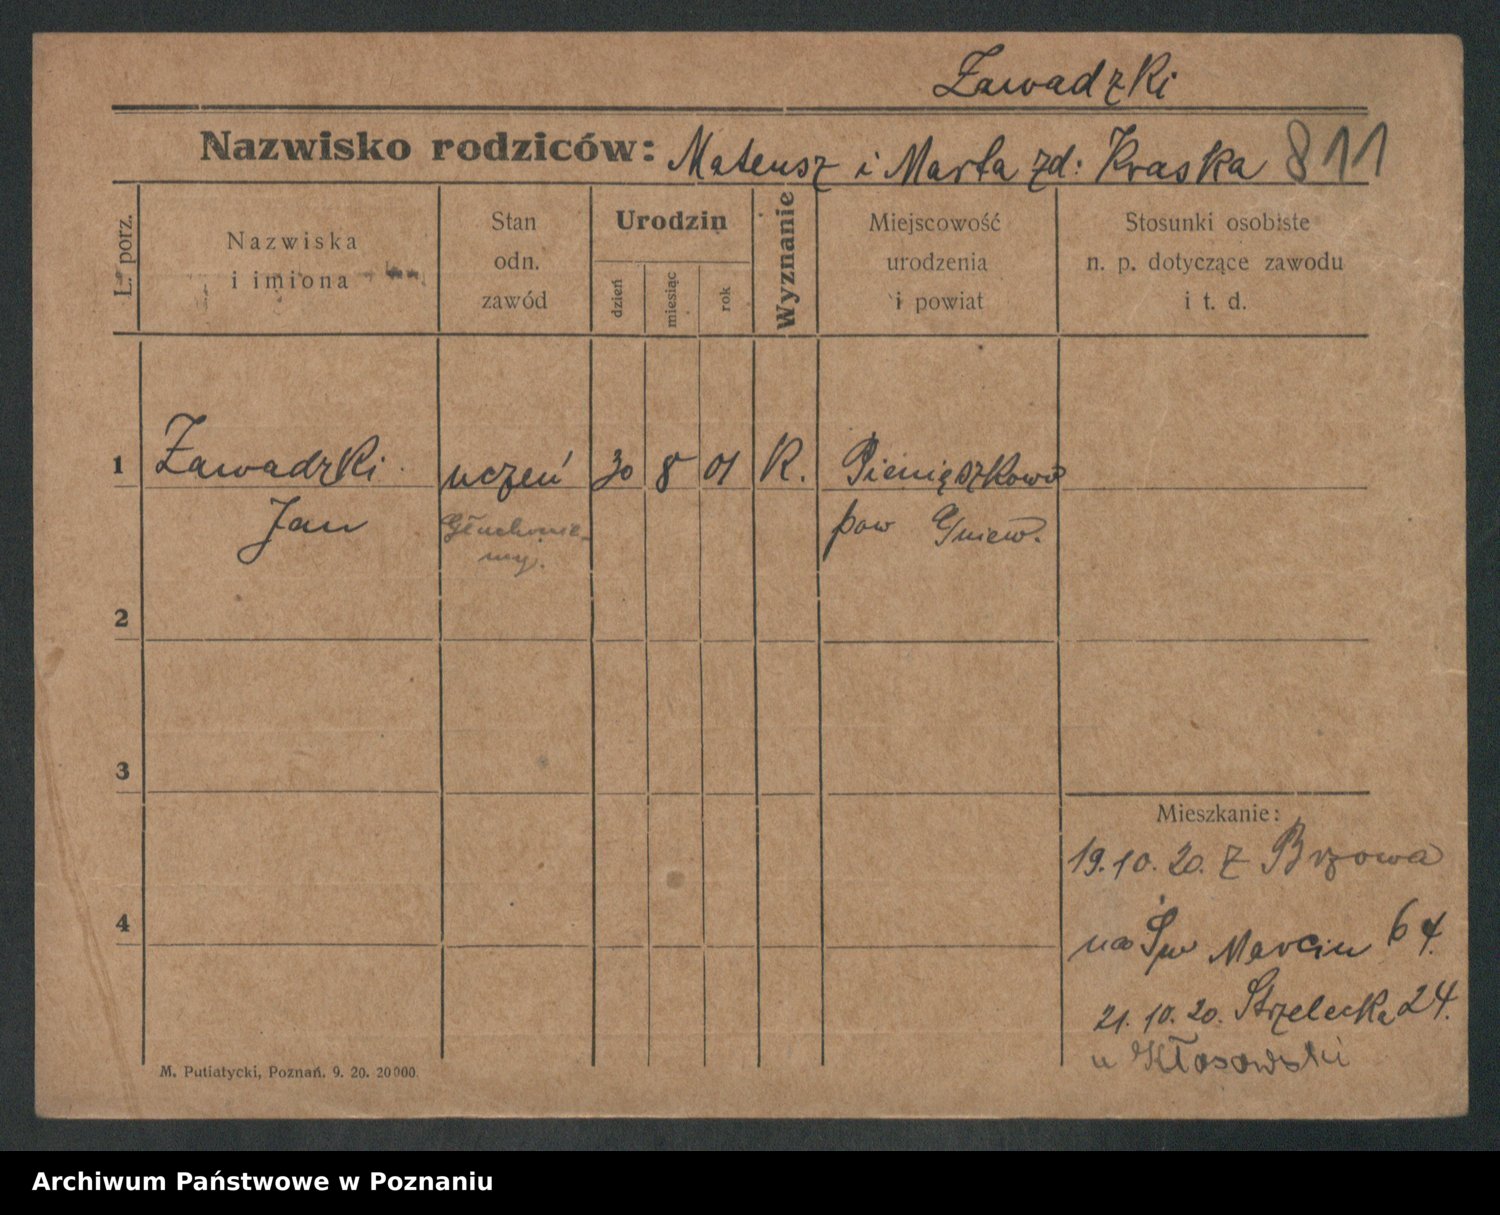 Zawadzki
Nazwisko rodziców: Mateusz i Marta zd: Kraska 811
L. porz.
Nazwiska
i imiona
Stan
odn.
zawód
Urodzin
dzień
miesiąc
rok
Wyznanie
Miejscowość
urodzenia
i powiat
Stosunki osobiste
n. p. dotyczące zawodu
i t. d.
1 Zawadzki uczeń 30 8 01 K. Pieniążkowo
Jan Głuchonie-
my. pow Gniew.
2
3
Mieszkanie:
19.10.20. z Brzowa
4
na Św Marcin 64.
21.10.20. Strzelecka 24.
u Kłosowski
M. Putiatycki, Poznań. 9. 20. 20000.
Archiwum Państwowe w Poznaniu